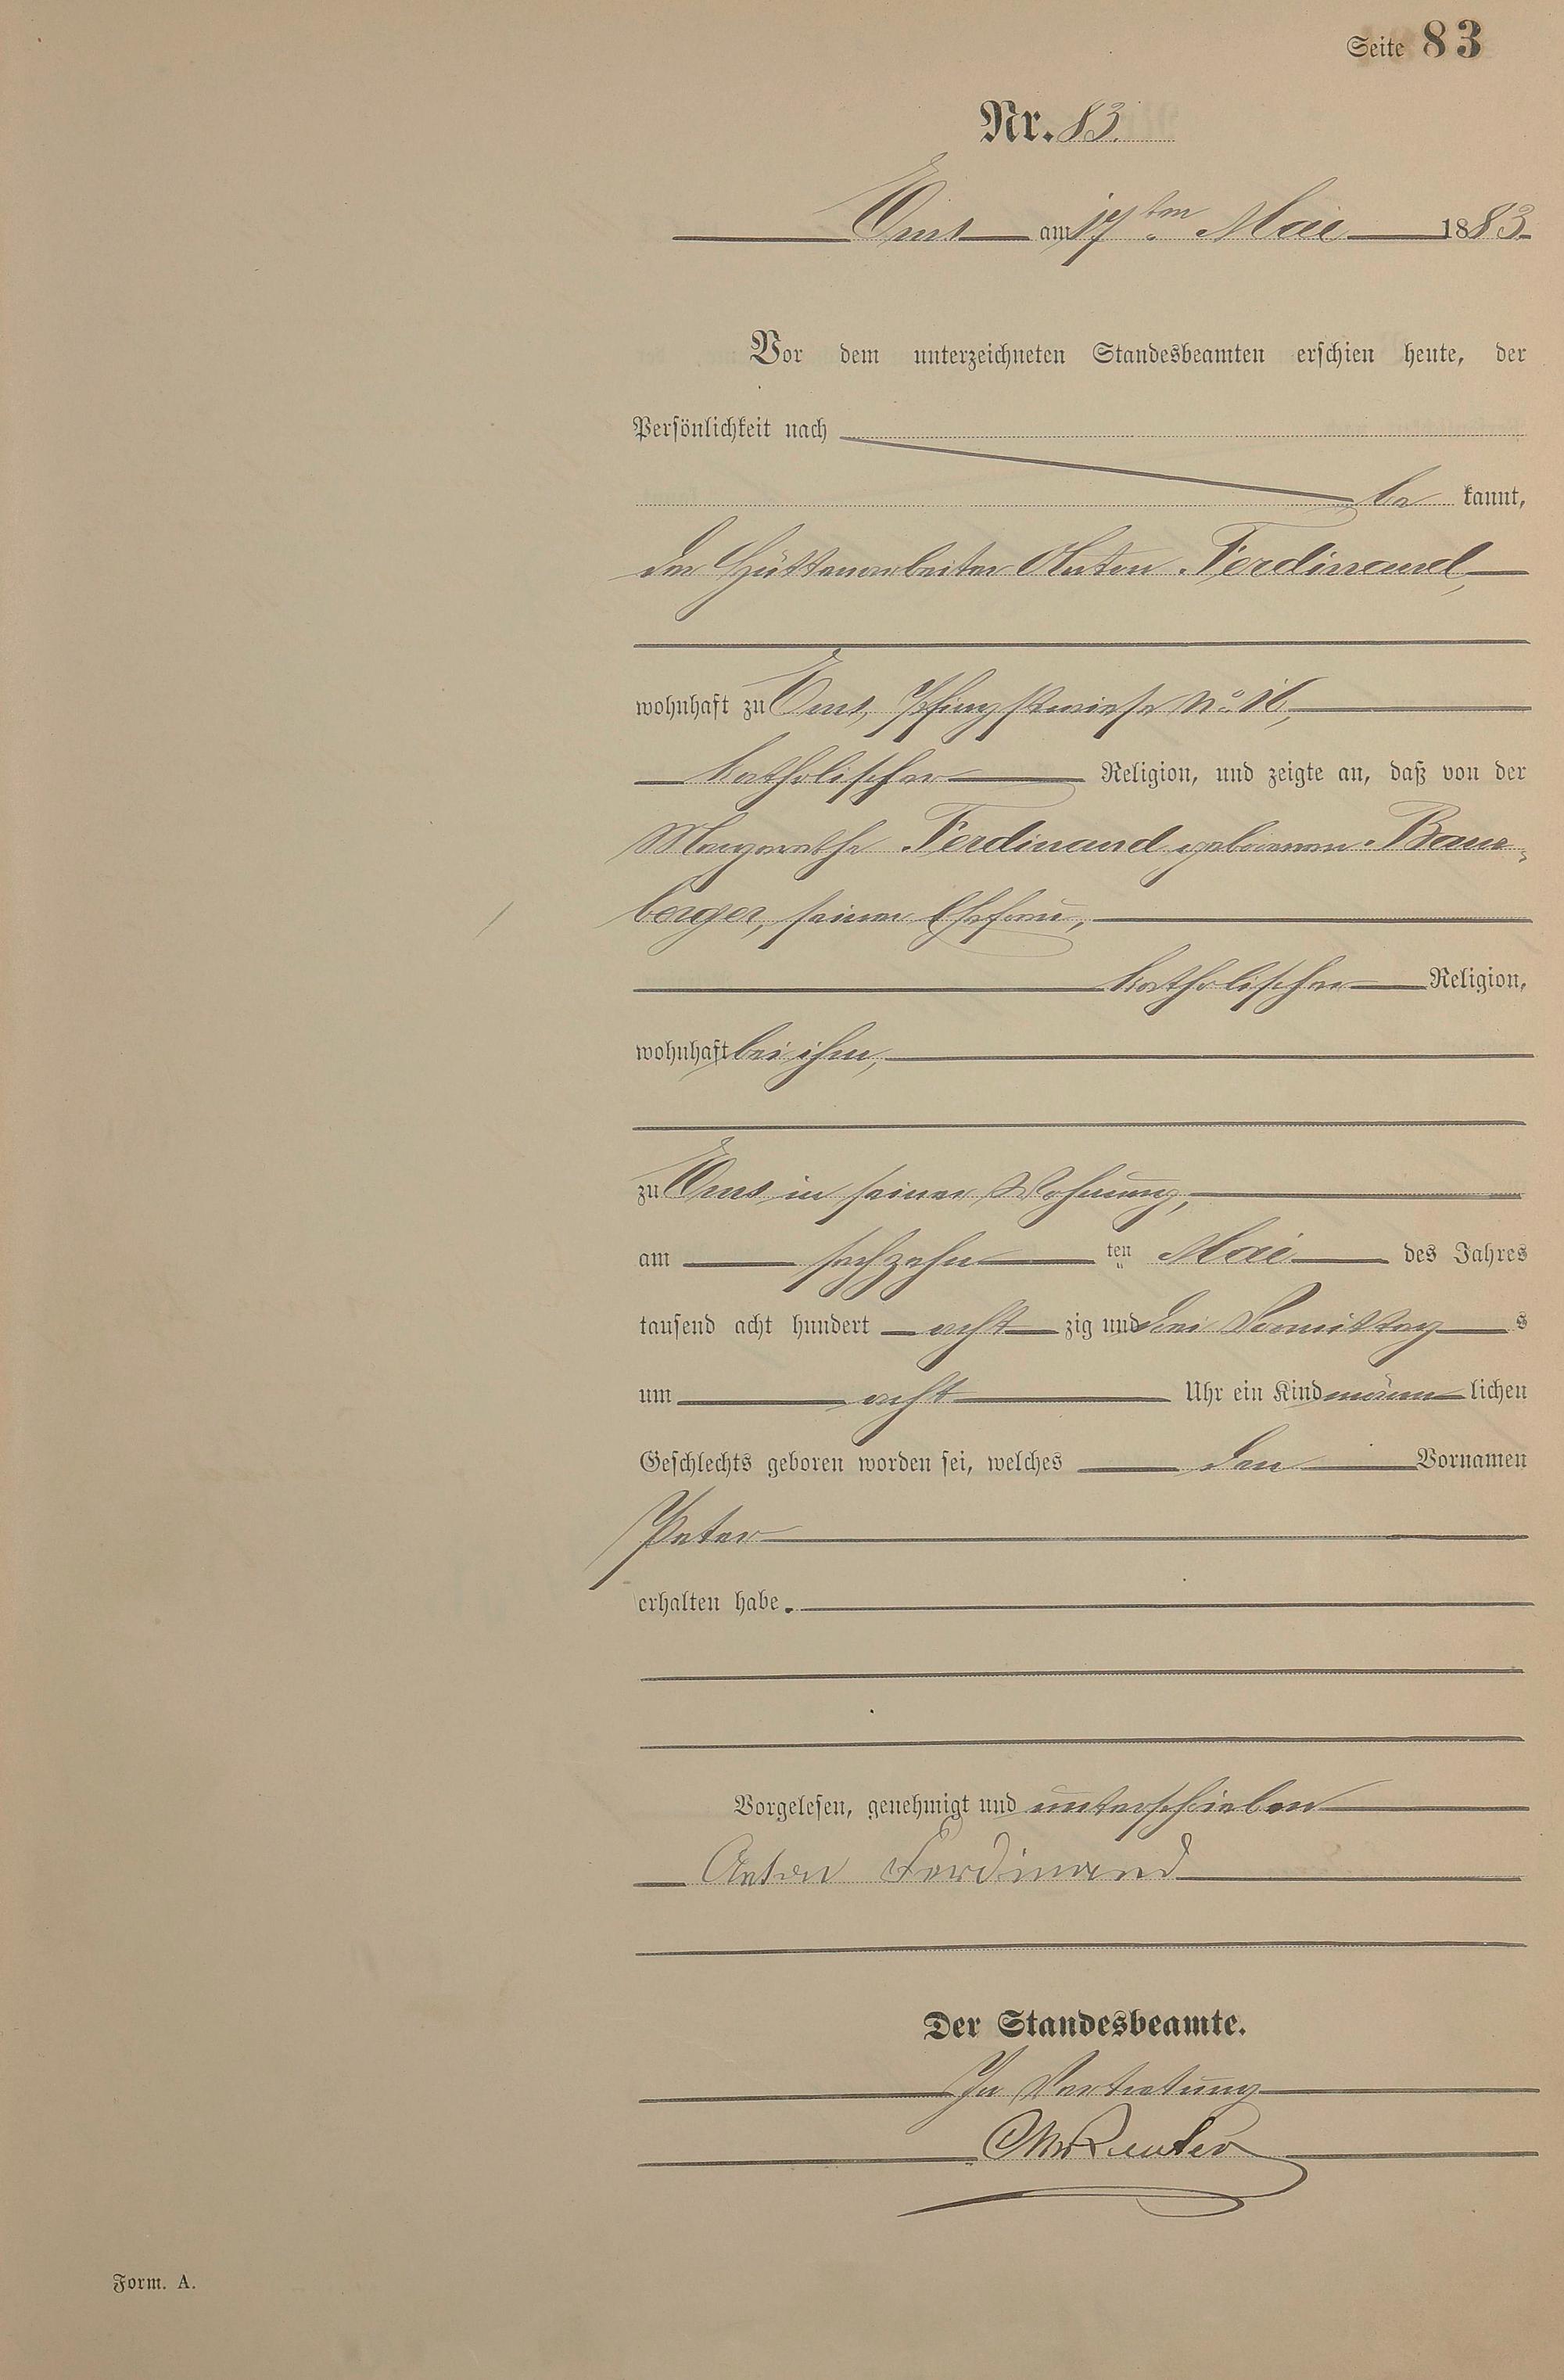 Seite 83
Nr. 83.
Ems am 17ten Mai 1883
Vor dem unterzeichneten Standesbeamten erschien heute, der
Persönlichkeit nach
be kannt,
der Hüttenarbeiter Anton Ferdinand,
wohnhaft zu Ems, Pfingstwiese No.
katholischer Religion, und zeigte an, daß von der
Margarethe Ferdinand geborenen
berger, seiner Ehefrau,
katholischer Religion,
wohnhaft bei ihm,
zu Ems in seiner Wohnung,
am sechzehn ten Mai des Jahres
tausend acht hundert acht zig und drei Vormittag s
um acht Uhr ein Kind männ lichen
Geschlechts geboren worden sei, welches den Vornamen
Peter
erhalten habe.
Vorgelesen, genehmigt und unterschrieben
Anton Ferdinand
Der Standesbeamte.
In Vertretung
Form. A.